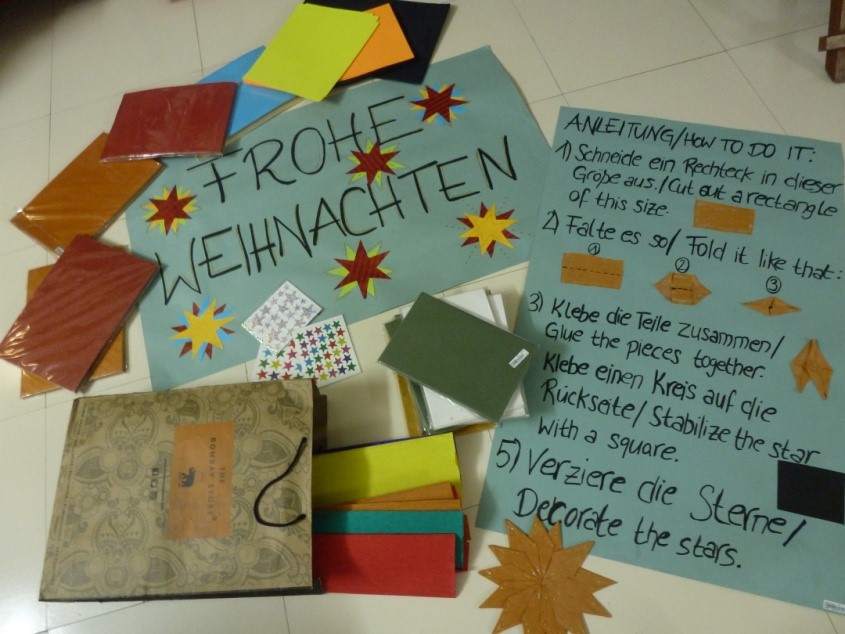 FROHE
WEIHNACHTEN
ANLEITUNG/HOW TO DO IT:
1) Schneide ein Rechteck in dieser
Größe aus./Cut out a rectangle
of this size.
2) Falte es so/ Fold it like that:
1 2 3
3) Klebe die Teile zusammen/
Glue the pieces together.
Klebe einen Kreis auf die
Rückseite/ Stabilize the star
with a square.
5) Verziere die Sterne/
Decorate the stars.
THE
BOMBAY STORE